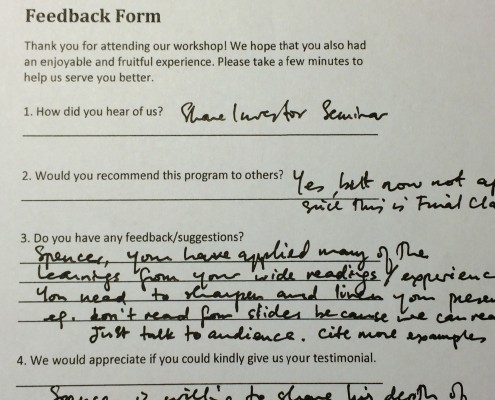 Feedback Form
Thank you for attending our workshop! We hope that you also had
an enjoyable and fruitful experience. Please take a few minutes to
help us serve you better.
1. How did you hear of us? Share Investor Seminar
2. Would you recommend this program to others? Yes, but now not ap
since this is Final Cla
3. Do you have any feedback/suggestions?
Spencer, you have applied many of the
learnings from your wide readings / experienc
You need to sharpen and liven your presen
eg. don't read from slides because we can rea
Just talk to audience. Cite more examples
4. We would appreciate if you could kindly give us your testimonial.
Spencer is willing to share his depth of